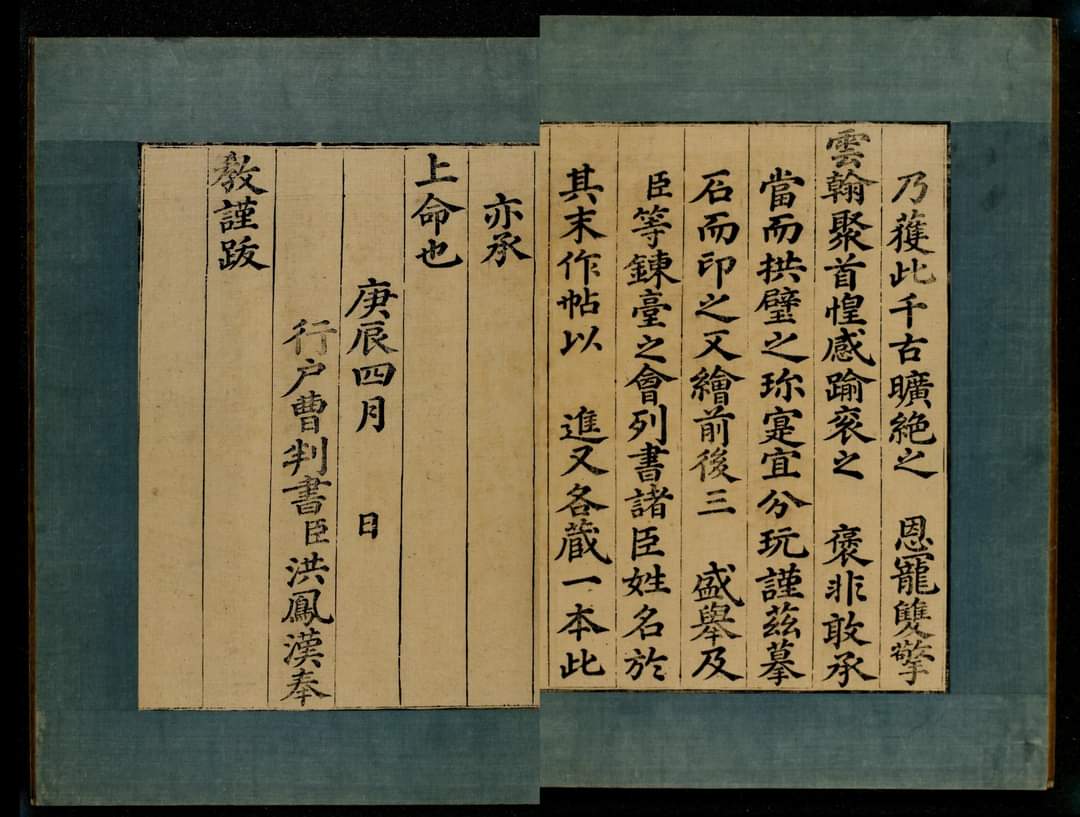 乃獲此千古曠絶之　恩寵雙擎
雲翰聚首惶感踰衮之　褒非敢承
當而拱璧之珎寔宜分玩謹茲摹
石而印之又繪前後三　盛舉及
臣等錬臺之會列書諸臣姓名於
其末作帖以　進又各蔵一本此
亦承
上命也
庚辰四月　日
行户曹判書臣洪鳳漢奉
敎謹跋